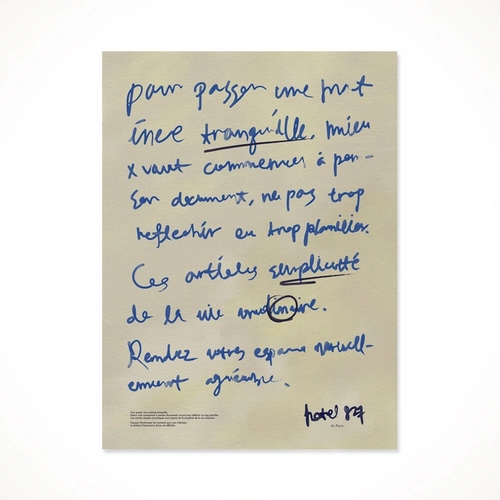 pour passer une mat
inee tranquille, mieu
x vaut commencer à pen-
ser doucement, ne pas trop
reflechir ou trop planifier.
Ces articles simplicité
de la vie ordinaire.
Rendez votres espace naturell-
ement agréable.
hotel 827
de Paris